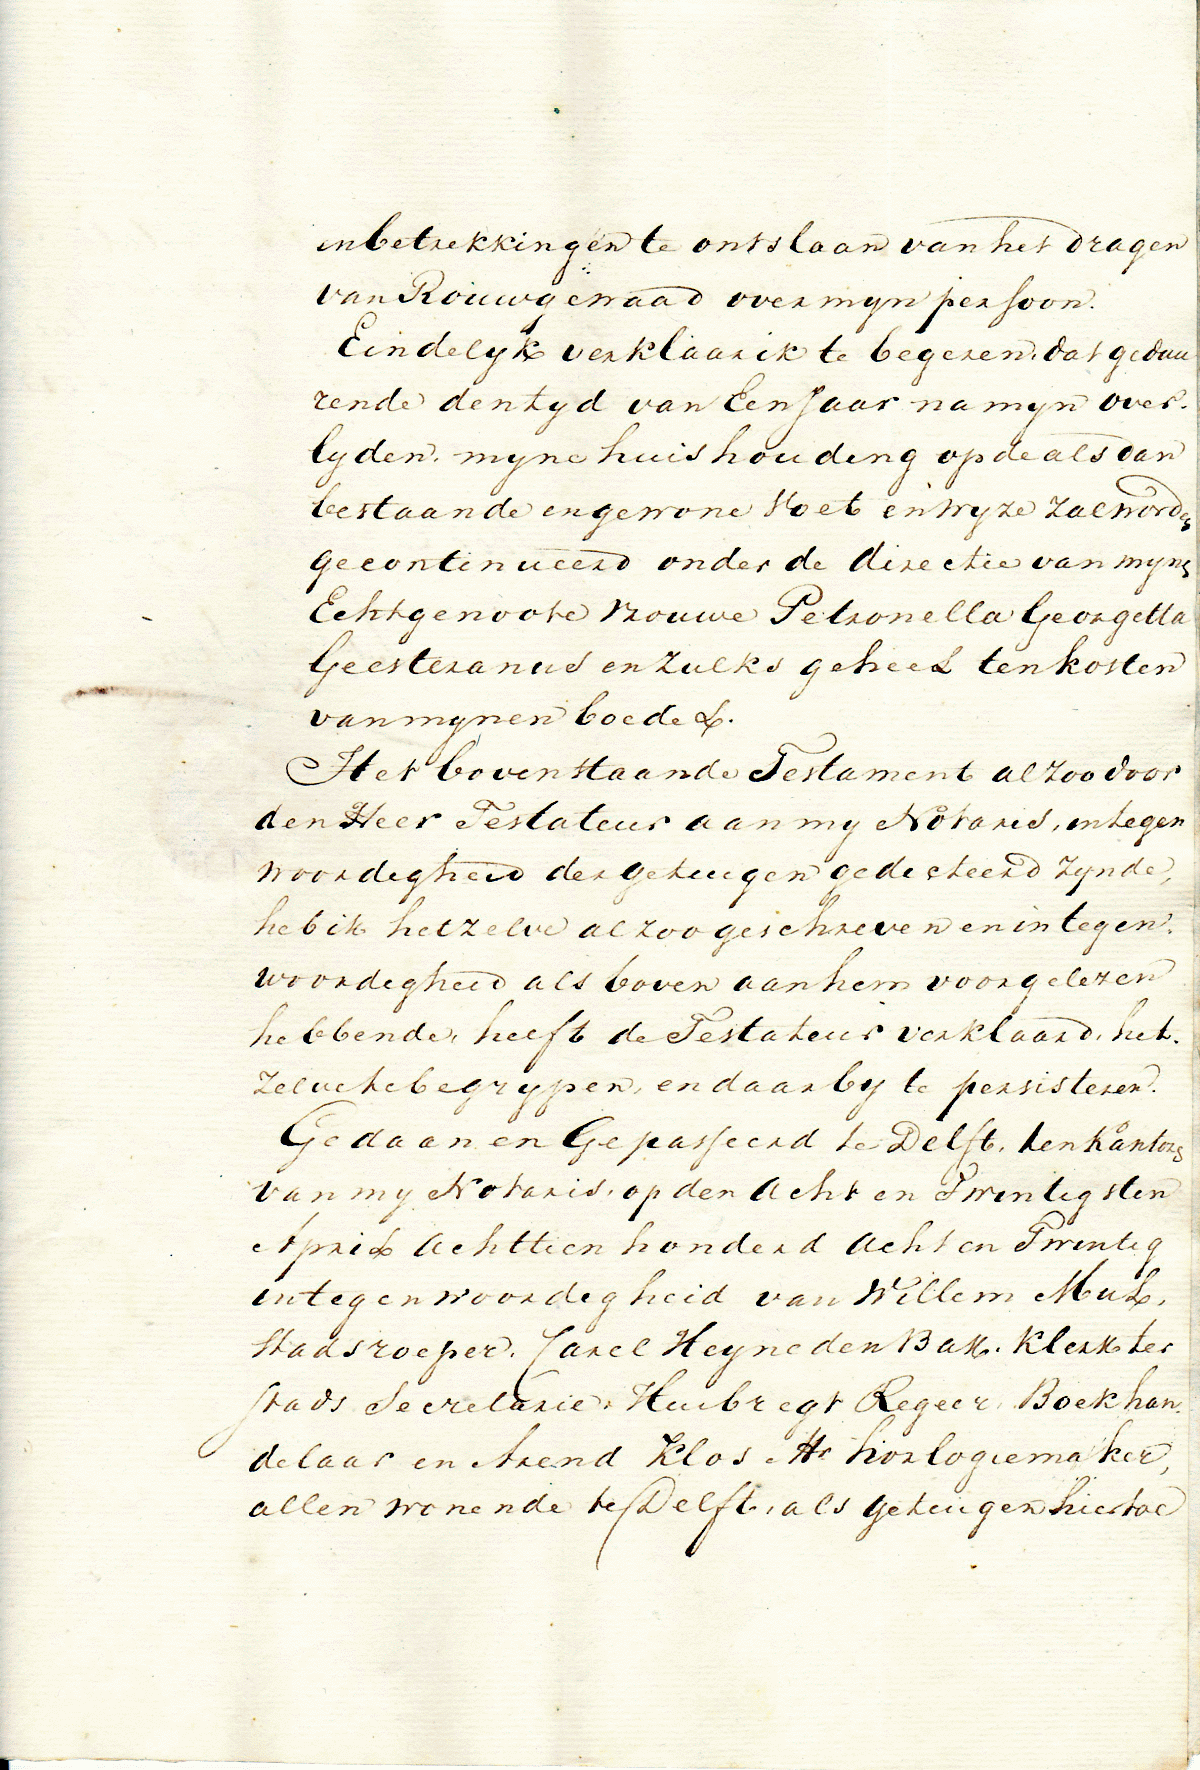 inbetrekkingen te ontslaan van het dragen
van Rouwgewaad over myn persoon.
Eindelyk verklaar ik te begeren, dat gedau
rende den tyd van Een Jaar na myn over-
lyden. myne huishouding op de als dan
bestaande en gewone Voet en wyze zal worden
gecontinueerd onder de directie van myne
Echtgenoote Vrouwe Petronella Georgetta
Geesteranus en zulks geheel ten kosten
van mynen boedel.
Het bovenstaande Testament alzoo door
den Heer Testateur aan my Notaris, in tegen
woordigheid der getuigen gedicteerd zynde,
heb ik hetzelve alzoo geschreven en in tegen-
woordigheid als boven aan hem voorgelezen
hebbende, heeft de Testateur verklaard, het-
zelve te begrypen, en daar by te persisteren.
Gedaan en Gepasseerd te Delft, ten kantore
van my Notaris, op den Acht en Twintigsten
April Achttien honderd Acht en Twintig
in tegenwoordigheid van Willem Mul,
Stadsroeper. Carel Heyne den Bak. Klerk ter
stads Secretarie, Huibregt Regeer, Boekhan-
delaar en Arend Klos Mr horlogiemaker,
allen wonende te Delft, als getuigen hiertoe